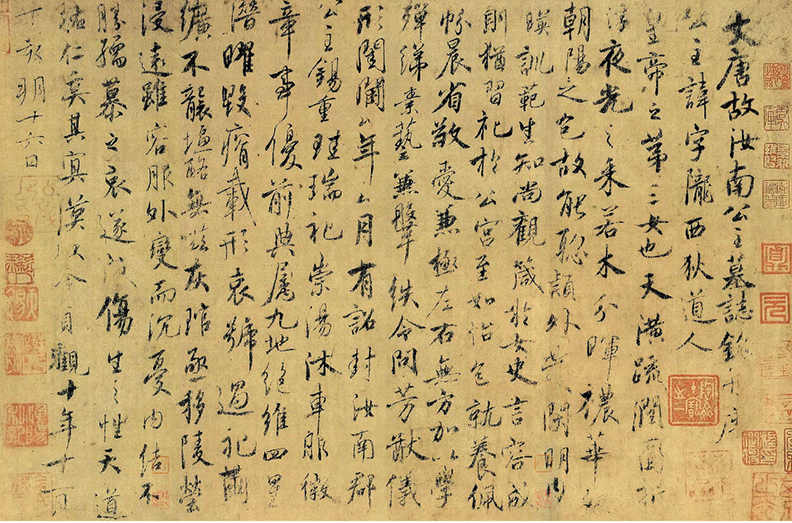 大唐故汝南公主墓誌銘并序
公主諱字隴西狄道人
皇帝之第三女也天潢疏潤圓折
浮夜光之采若木分暉穠華
朝陽之色故能聰穎外發閑明內
暎訓範生知尚觀箴於女史言容成
則猶習祀於公宮至如怡色就養佩
帉晨省敬愛兼極左右無方加以學
殫綈素藝兼鞶紩令問芳猷儀
形閨閫厶年厶月有詔封汝南郡
公主錫重珪瑞祀崇湯沐車服徽
章事優前典屬九地絕維四星
潛曜毀瘠載形哀號過禮繭
纊不襲塩酪無嗞灰琯亟移陵塋
浸遠雖容服外變而沉憂內結不
勝孺慕之哀遂成傷生之性天道
祐仁奚其冥漠以今貞觀十年十一月
丁亥朔十六日